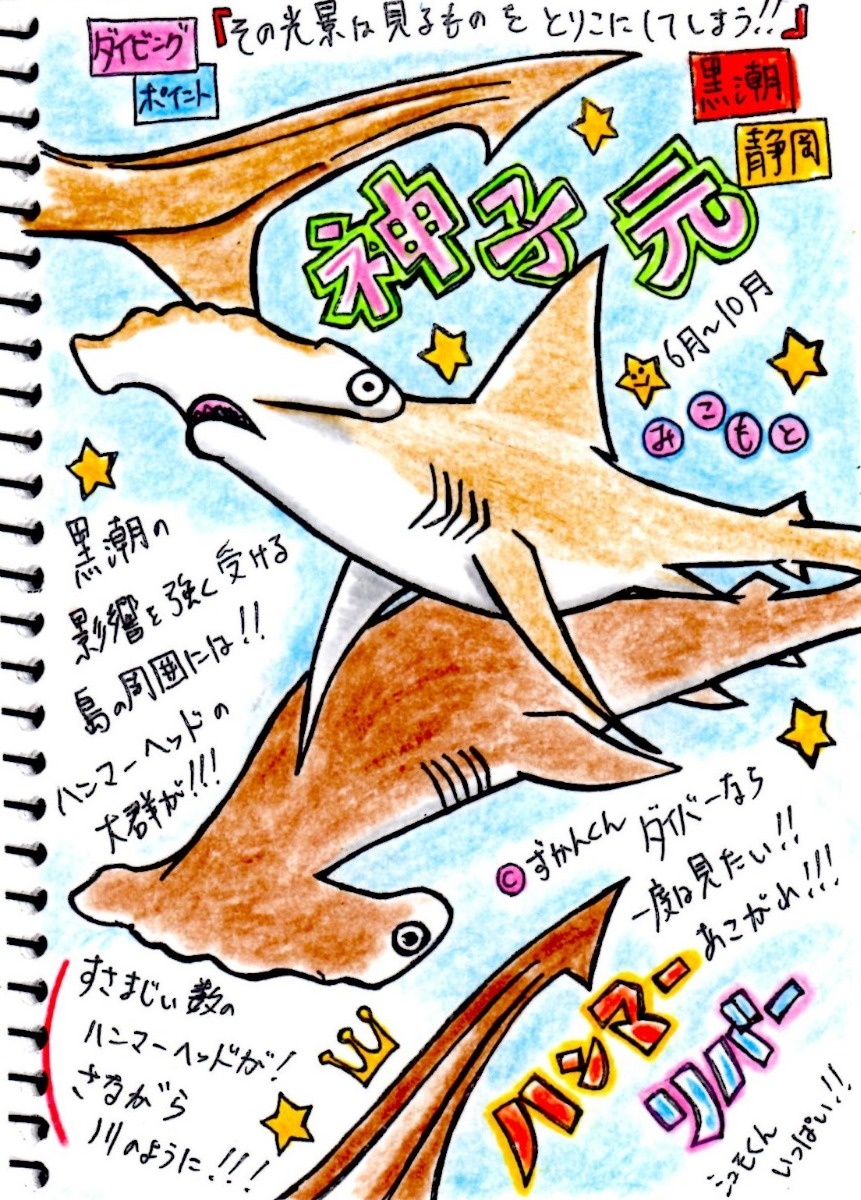 『その光景は見るものを とりこにしてしまう!!』
ダイビング
ポイント
黒潮
静岡
神子元
6月～10月
みこもと
黒潮の
影響を強く受ける
島の周囲には!!
ハンマーヘッドの
大群が!!!
©ずかんくん
ダイバーなら
一度は見たい!!
あこがれ!!!
ハンマー
リバー
すさまじい数の
ハンマーヘッドが!
さながら
川のように!!!
シュモくん
いっぱい!!